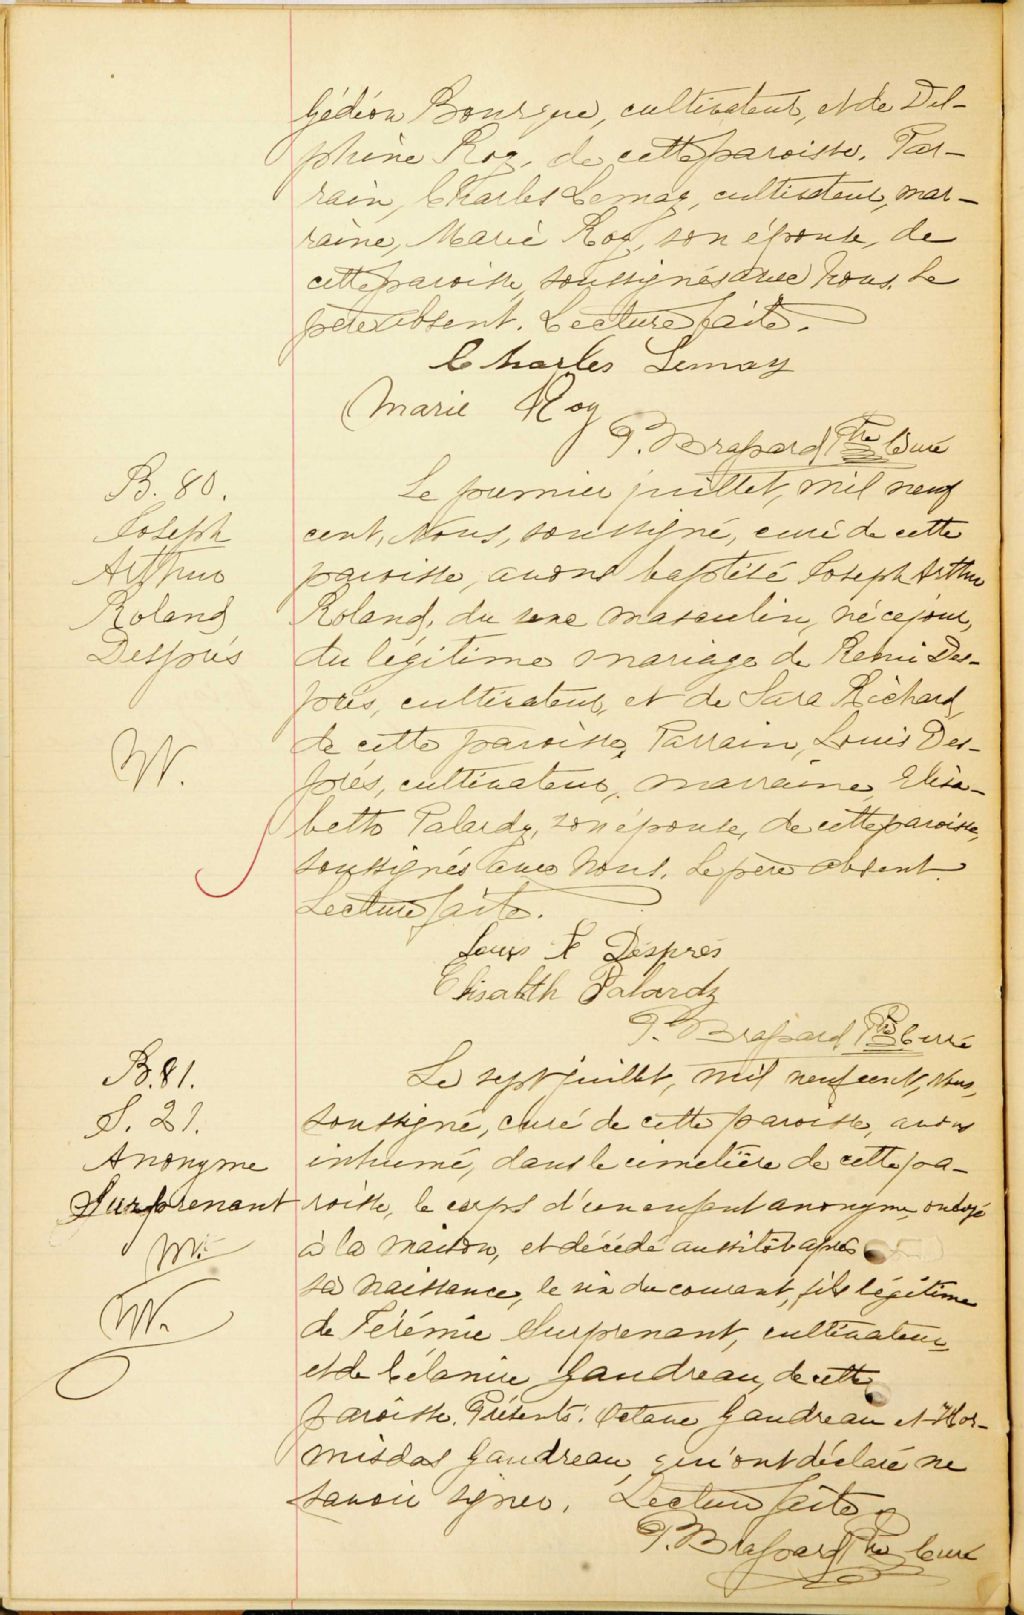 Gédéon Bourque, cultivateur, et de Del-
phine Roy, de cette paroisse. Par-
rain, Charles Lemay, cultivateur, mar-
raine, Marie Roy, son épouse, de
cette paroisse, soussignés avec Nous. Le
père absent. Lecture faite.
Charles Lemay
Marie Roy
P. Brassard Ptre Curé
B. 80.
Joseph
Arthur
Roland
Després
W.
Le premier juillet, mil neuf
cent, Nous, soussigné, curé de cette
paroisse, avons baptisé Joseph Arthur
Roland, du sexe masculin, né ce jour,
du légitime mariage de Remi Des-
prés, cultivateur, et de Sara Richard,
de cette paroisse, Parrain, Louis Des-
prés, cultivateur, marraine, Elisa-
beth Palardy, son épouse, de cette paroisse,
soussignés avec Nous. Le père absent.
Lecture faite.
Louis Després
Elisabth Palardy
P. Brassard Ptre Curé
B. 81.
S. 21.
Anonyme
Surprenant
W.
Le sept juillet, mil neuf cent, Nous,
soussigné, curé de cette paroisse, avons
inhumé, dans le cimetière de cette pa-
roisse, le corps d'un enfant anonyme, ondoyé
à la maison, et décédé aussitôt après
sa naissance, le six du courant, fils légitime
de Jérémie Surprenant, cultivateur,
et de Célanire Gaudreau, de cette
paroisse. Présents: Octave Gaudreau et Hor-
misdas Gaudreau, qui ont déclaré ne
savoir signer. Lecture faite.
P. Brassard Ptre Curé